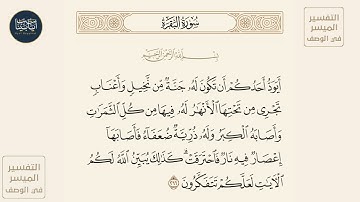 التفسير
الميسر
في الوصف
سُورَةُ البَقَرَةِ
بِسْمِ اللَّهِ الرَّحْمَٰنِ الرَّحِيمِ
أَيَوَدُّ أَحَدُكُمْ أَن تَكُونَ لَهُۥ جَنَّةٌ مِّن نَّخِيلٍ وَأَعْنَابٍ
تَجْرِى مِن تَحْتِهَا ٱلْأَنْهَٰرُ لَهُۥ فِيهَا مِن كُلِّ ٱلثَّمَرَٰتِ
وَأَصَابَهُ ٱلْكِبَرُ وَلَهُۥ ذُرِّيَّةٌ ضُعَفَآءُ فَأَصَابَهَآ
إِعْصَارٌ فِيهِ نَارٌ فَٱحْتَرَقَتْ ۗ كَذَٰلِكَ يُبَيِّنُ ٱللَّهُ لَكُمُ
ٱلْءَايَٰتِ لَعَلَّكُمْ تَتَفَكَّرُونَ ٢٦٦
التفسير
الميسر
في الوصف